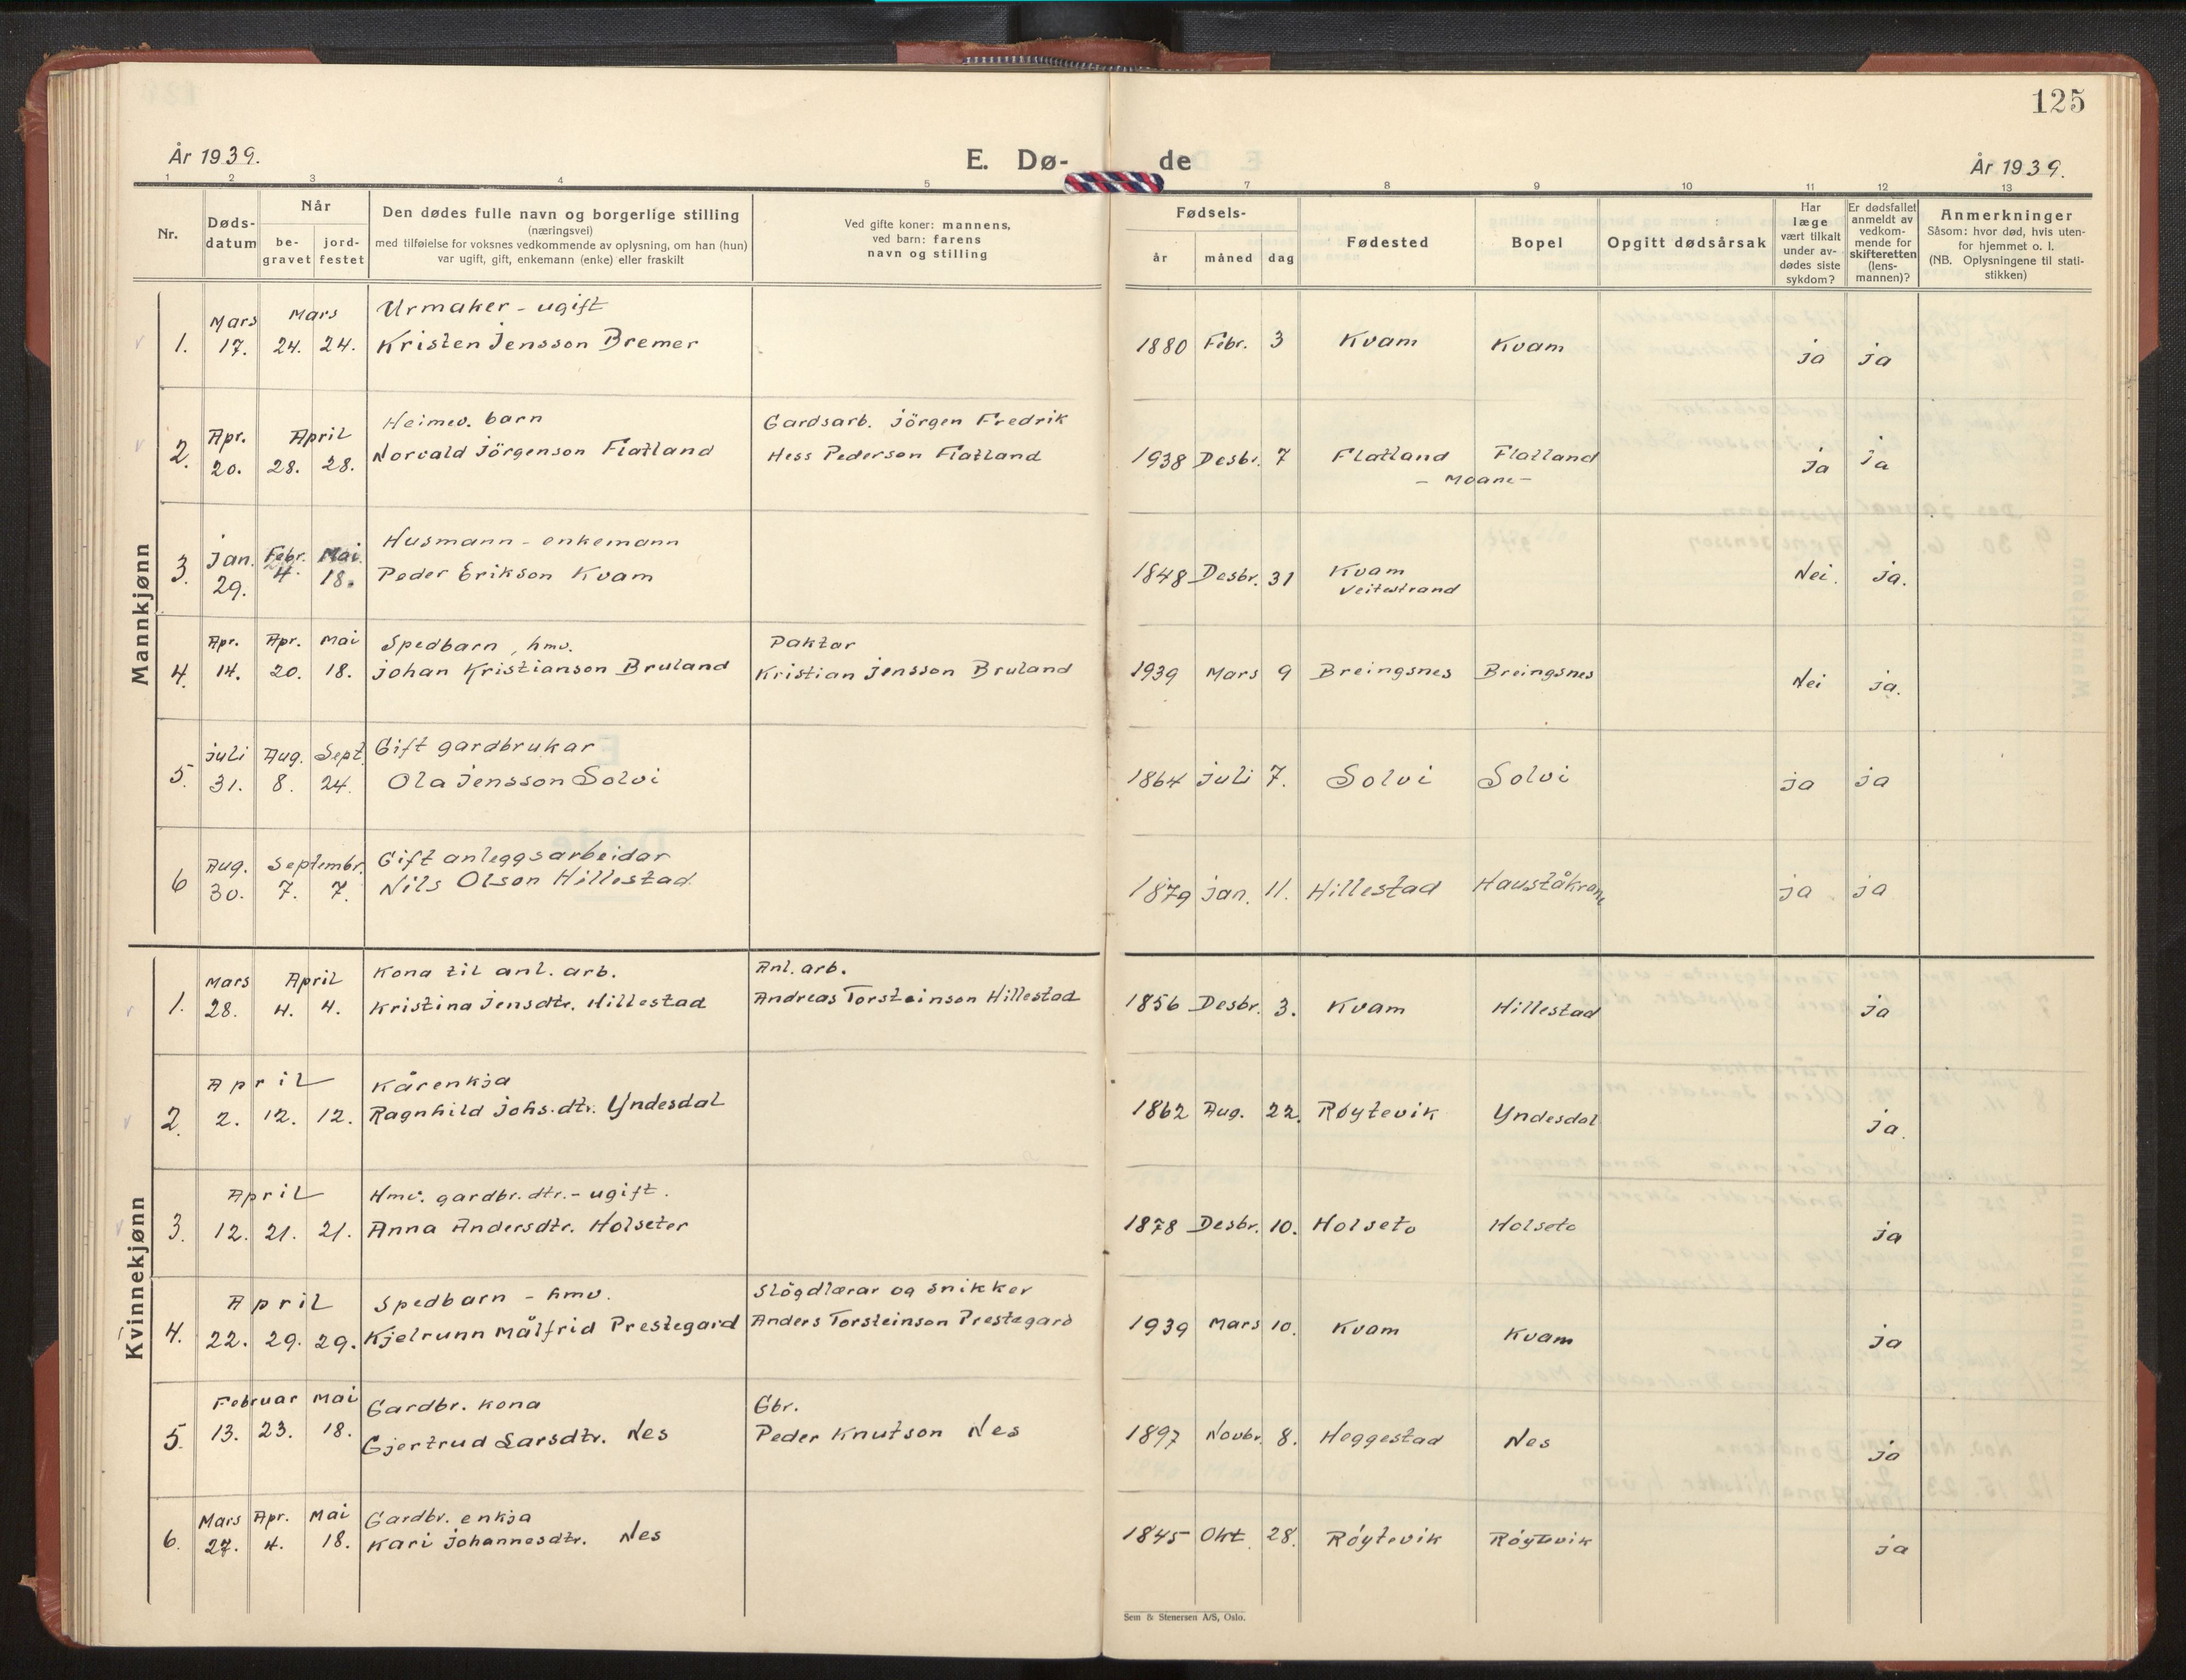 125
År 1939.
E. Dø- de
År 1939.
1 2 3 4 5 7 8 9 10 11 12 13
Nr.
Døds-
datum
Når
be-
gravet
jord-
festet
Den dødes fulle navn og borgerlige stilling
(næringsvei)
med tilføielse for voksnes vedkommende av oplysning, om han (hun)
var ugift, gift, enkemann (enke) eller fraskilt
Ved gifte koner: mannens,
ved barn: farens
navn og stilling
Fødsels-
år måned dag
Fødested
Bopel
Opgitt dødsårsak
Har
læge
vært tilkalt
under av-
dødes siste
sykdom?
Er dødsfallet
anmeldt av
vedkom-
mende for
skifteretten
(lens-
mannen)?
Anmerkninger
Såsom: hvor død, hvis uten-
for hjemmet o. l.
(NB. Oplysningene til stati-
stikken)
Mannkjønn
Mars Mars Urmaker - ugift
1. 17. 24. 24. Kristen Jensson Bremer 1880 Febr. 3 Kvam Kvam ja ja
Apr. April Heimev. barn Gardsarb. Jörgen Fredrik
2. 20. 28. 28. Norvald Jörgenson Flatland Hess Pederson Flatland 1938 Desbr. 7 Flatland Flatland ja ja
- Moane -
Jan. Febr. Mai Husmann - enkemann
3. 29. 4. 18. Peder Erikson Kvam 1848 Desbr. 31 Kvam Nei. ja.
Veitestrand
Apr. Apr. Mai Spedbarn, hmv. Paktar
4. 14. 20. 18. Johan Kristianson Bruland Kristian Jensson Bruland 1939 Mars 9 Breingsnes Breingsnes Nei ja.
Juli Aug. Sept. Gift gardbrukar
5. 31. 8. 24. Ola Jensson Solvi 1864 juli 7. Solvi Solvi ja ja
Aug. Septembr. Gift anleggsarbeidar
6 30. 7. 7. Nils Olson Hillestad 1879 jan. 11. Hillestad ja ja
Kvinnekjønn
Mars April Kona til anl. arb. Anl. arb.
1. 28. 4. 4. Kristina Jensdtr. Hillestad Andreas Torsteinson Hillestad 1856 Desbr. 3. Kvam Hillestad ja
April Kårenkja
2. 2. 12. 12. Ragnhild Johs.dtr. Yndesdal 1862 Aug. 22. Röytevik Yndesdal ja.
April Hmv. gardbr. dtr. - ugift.
3. 12. 21. 21. Anna Andersdtr. Holseter 1878 Desbr. 10. Holseto Holseto ja
April Spedbarn - hmv. Slögdlærar og snikker
4. 22. 29. 29. Kjelrunn Målfrid Prestegard Anders Torsteinson Prestegard 1939 Mars 10. Kvam Kvam ja
Februar Mai Gardbr. kona Gbr.
5. 13. 23. 18. Gjertrud Larsdtr. Nes Peder Knutson Nes 1897 Novbr. 8. Heggestad Nes ja
Mars Apr. Mai Gardbr. enkja
6. 27. 4. 18. Kari Johannesdtr. Nes 1845 Okt. 28. Röytevik Röytevik ja
Sem & Stenersen A/S, Oslo.